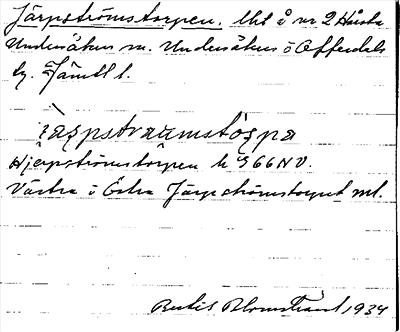 Järpströmstorpen. lht å nr 2 Håsta
Undersåkers sn. Undersåkers o Offerdals
tg. Jämtl l.
jäṣpstraumstòṣpa
Hjerpströmstorpen k G 66 NV.
Västra i Östra Järpströmstorpet ml.
Bertil Blomstrand 1934